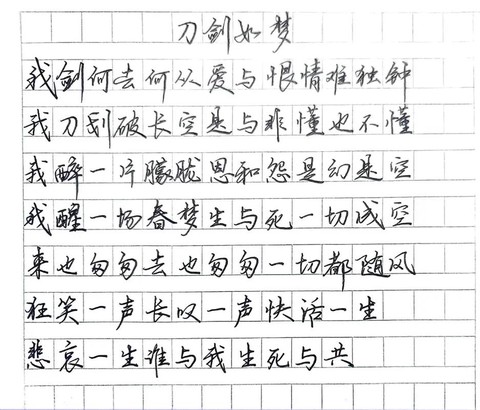 刀剑如梦
我剑何去何从爱与恨情难独钟
我刀划破长空是与非懂也不懂
我醉一片朦胧恩和怨是幻是空
我醒一场春梦生与死一切成空
来也匆匆去也匆匆一切都随风
狂笑一声长叹一声快活一生
悲哀一生谁与我生死与共